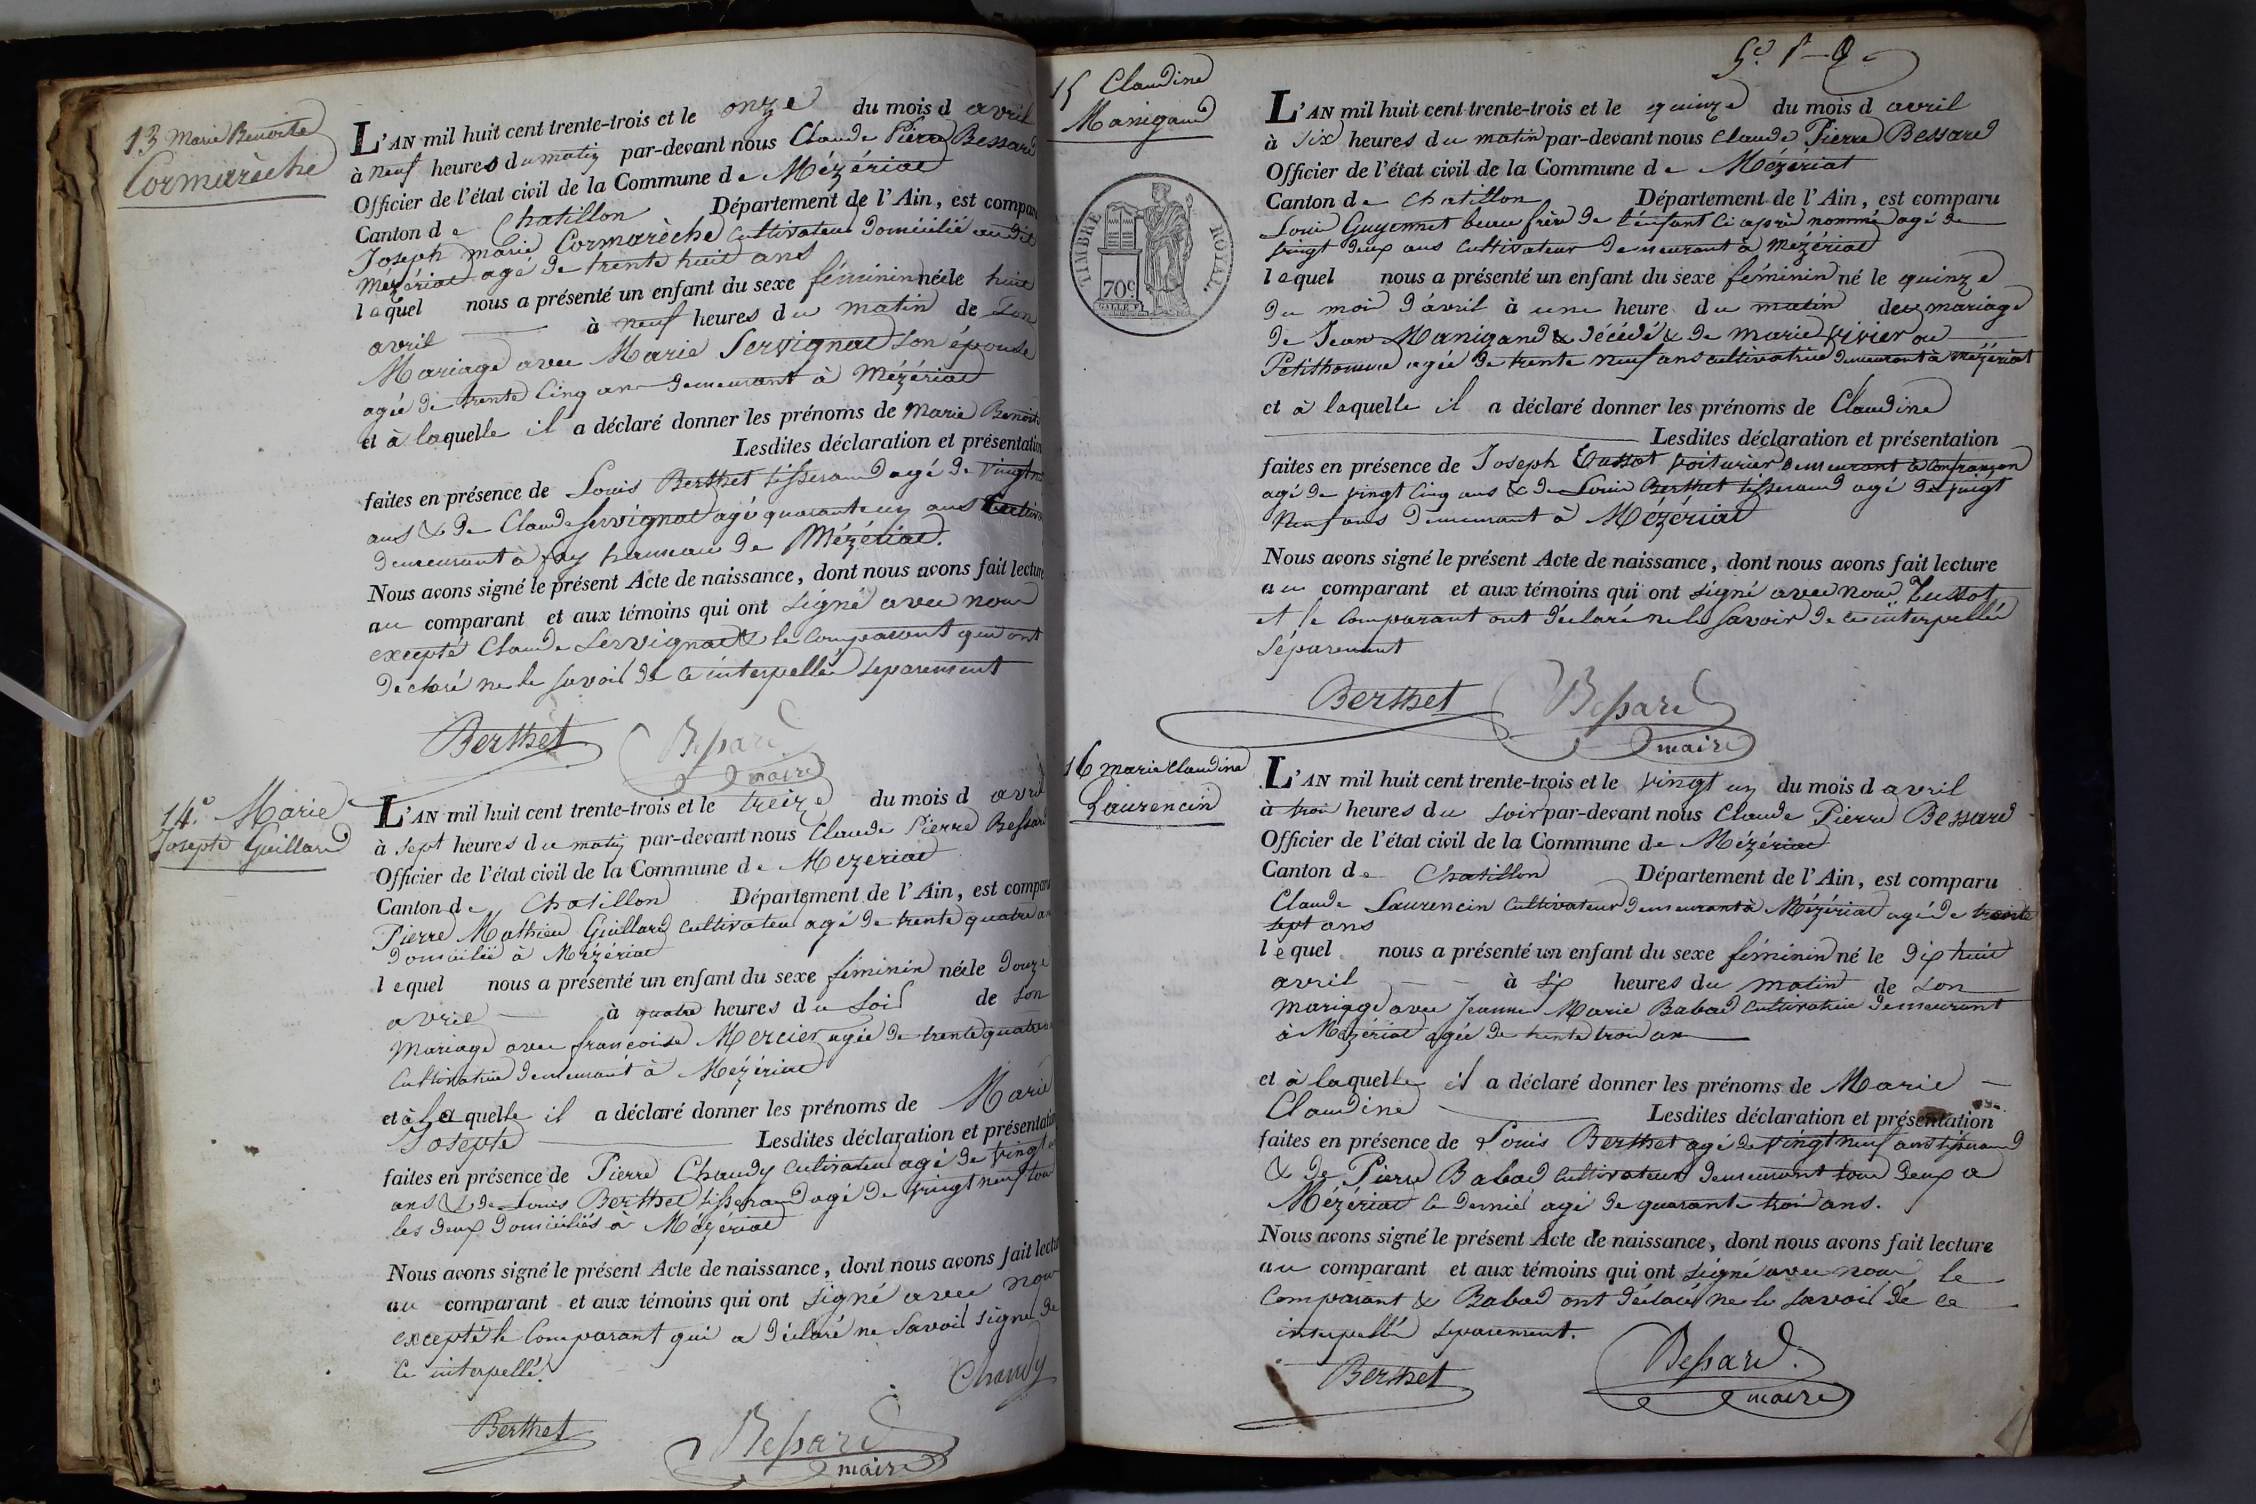 13 Marie Benoite
Cormarèche
L'AN mil huit cent trente-trois et le onze du mois d avril
à neuf heures du matin par-devant nous Claude Pierre Bessard
Officier de l'état civil de la Commune de Mézériat
Canton de Chatillon Département de l'Ain, est compar
Joseph marie Cormarèche cultivateur domicilié au dit
Mézériat agé de trente huit ans
lequel nous a présenté un enfant du sexe féminin née le huit
avril à neuf heures du matin de son
Mariage avec Marie Servignat son épouse
agée de trente cinq ans demeurant à Mézériat
et à laquelle il a déclaré donner les prénoms de Marie Benoite
Lesdites déclaration et présentation
faites en présence de Louis Berthet tisserand agé de vingt
ans & de Claude Servignat agé quarante un ans
demeurant à fay hameau de Mézériat.
Nous avons signé le présent Acte de naissance, dont nous avons fait lecture
au comparant et aux témoins qui ont signé avec nous
excepté Claude Servignat & le comparant qui ont
déclaré ne le savoir de ce interpellés separement
Berthet Bessard
maire
14.e Marie
Josephe Guillard
L'AN mil huit cent trente-trois et le treize du mois d avril
à sept heures du matin par-devant nous Claude Pierre Bessard
Officier de l'état civil de la Commune de Mezeriat
Canton de Chatillon Département de l'Ain, est compar
Pierre Mathieu Guillard cultivateur agé de trente quatre an
domicilié à Mézériat
lequel nous a présenté un enfant du sexe féminin née le douze
avril à quatre heures du soir de son
mariage avec françoise Mercier agée de trente quatre
cultivatrice demeurant à Mézériat
et à laquelle il a déclaré donner les prénoms de Marie
Josephe Lesdites déclaration et présentation
faites en présence de Pierre Chaudy cultivateur agé de vingt
ans & de Louis Berthet tisserand agé de vingt neuf tous
les deux domiciliés à Mézériat
Nous avons signé le présent Acte de naissance, dont nous avons fait lectu
au comparant et aux témoins qui ont signé avec nous
excepté le comparant qui a déclaré ne savoir signer de
ce interpellé.
Chaudy
Berthet Bessard
maire
15 Claudine
Manigand
TIMBRE ROYAL
70c
L'AN mil huit cent trente-trois et le quinze du mois d avril
à six heures du matin par-devant nous Claude Pierre Bessard
Officier de l'état civil de la Commune de Mézériat
Canton de Chatillon Département de l'Ain, est comparu
Louis Guyonnet beau frère de l'enfant ci après nommé agé de
vingt deux ans cultivateur demeurant à Mézériat
lequel nous a présenté un enfant du sexe féminin né le quinze
du mois d'avril à une heure du matin du mariage
de Jean Manigand décédé & de marie vivier ou
Petithomme agée de trente neuf ans cultivatrice demeurant à Mézériat
et à laquelle il a déclaré donner les prénoms de Claudine
Lesdites déclaration et présentation
faites en présence de Joseph Tussot voiturier demeurant à Confrançon
agé de vingt cinq ans & de Louis Berthet tisserand agé de vingt
neuf ans demeurant à Mézériat
Nous avons signé le présent Acte de naissance, dont nous avons fait lecture
au comparant et aux témoins qui ont signé avec nous. Tussot
et le comparant ont déclaré ne le savoir de ce interpellés
séparement
Berthet Bessard
maire
16 marie Claudine
Laurencin
L'AN mil huit cent trente-trois et le vingt un du mois d avril
à trois heures du soir par-devant nous Claude Pierre Bessard
Officier de l'état civil de la Commune de Mézériat
Canton de Chatillon Département de l'Ain, est comparu
Claude Laurencin cultivateur demeurant à Mézériat agé de trente
sept ans
lequel nous a présenté un enfant du sexe féminin né le dix huit
avril à six heures du matin de son
mariage avec Jeanne Marie Babad cultivatrice demeurant
à Mézériat agée de trente trois ans
et à laquelle il a déclaré donner les prénoms de Marie
Claudine Lesdites déclaration et présentation
faites en présence de Louis Berthet agé de vingt neuf ans tisserand
& de Pierre Babad cultivateur demeurant tous deux a
Mézériat ce dernier agé de quarante trois ans.
Nous avons signé le présent Acte de naissance, dont nous avons fait lecture
au comparant et aux témoins qui ont signé avec nous le
comparant & Babad ont déclaré ne le savoir de ce
interpellés separement.
Berthet Bessard
maire